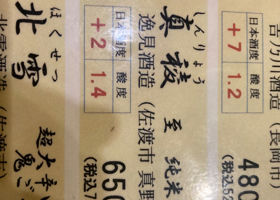 (長岡市)
日本酒度 酸度
+7 1.2
480
(税込52
しんりょう
真稜 至 純米
逸見酒造(佐渡市 真野
日本酒度 酸度
+2 1.4
650
(税込7
ほくせつ
北雪 超大辛
鬼
北雪酒造(佐渡市)